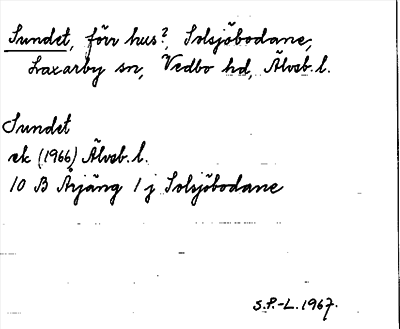 Sundet, förr hus?, Solsjöbodane,
Laxarby sn, Vedbo hd, Älvsb. l.
Sundet
ek (1966) Älvsb. l.
10 B Årjäng 1 j Solsjöbodane
S.P.-L. 1967.